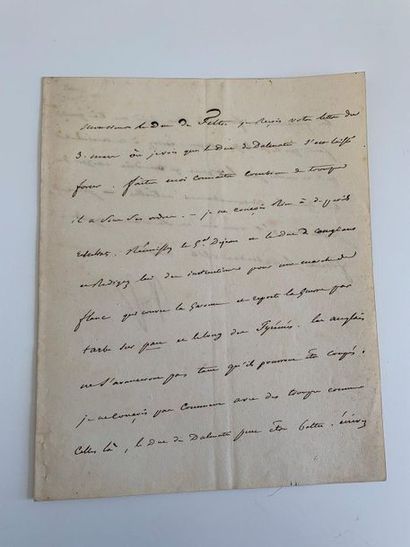 Monsieur le Duc de Feltre je reçois votre lettre du
3. mars où je vois que le Duc de Dalmatie s'est laissé
forcer. faites moi connaître combien de troupes
il a sous ses ordres. — je ne conçois rien à de pareils
Réunissez le Gal Dejean et le Duc de Conegliano
et Redigez lui des instructions pour une marche de
flanc qui couvre la Garonne et reporte la Guerre par
tarbe sur pau et le long des Pyrénées. les anglais
ne s'avanceront pas tant qu'ils pourront être coupés.
je ne conçois pas comment avec des troupes comme
Celles là, le Duc de Dalmatie peut être battu. écrivez